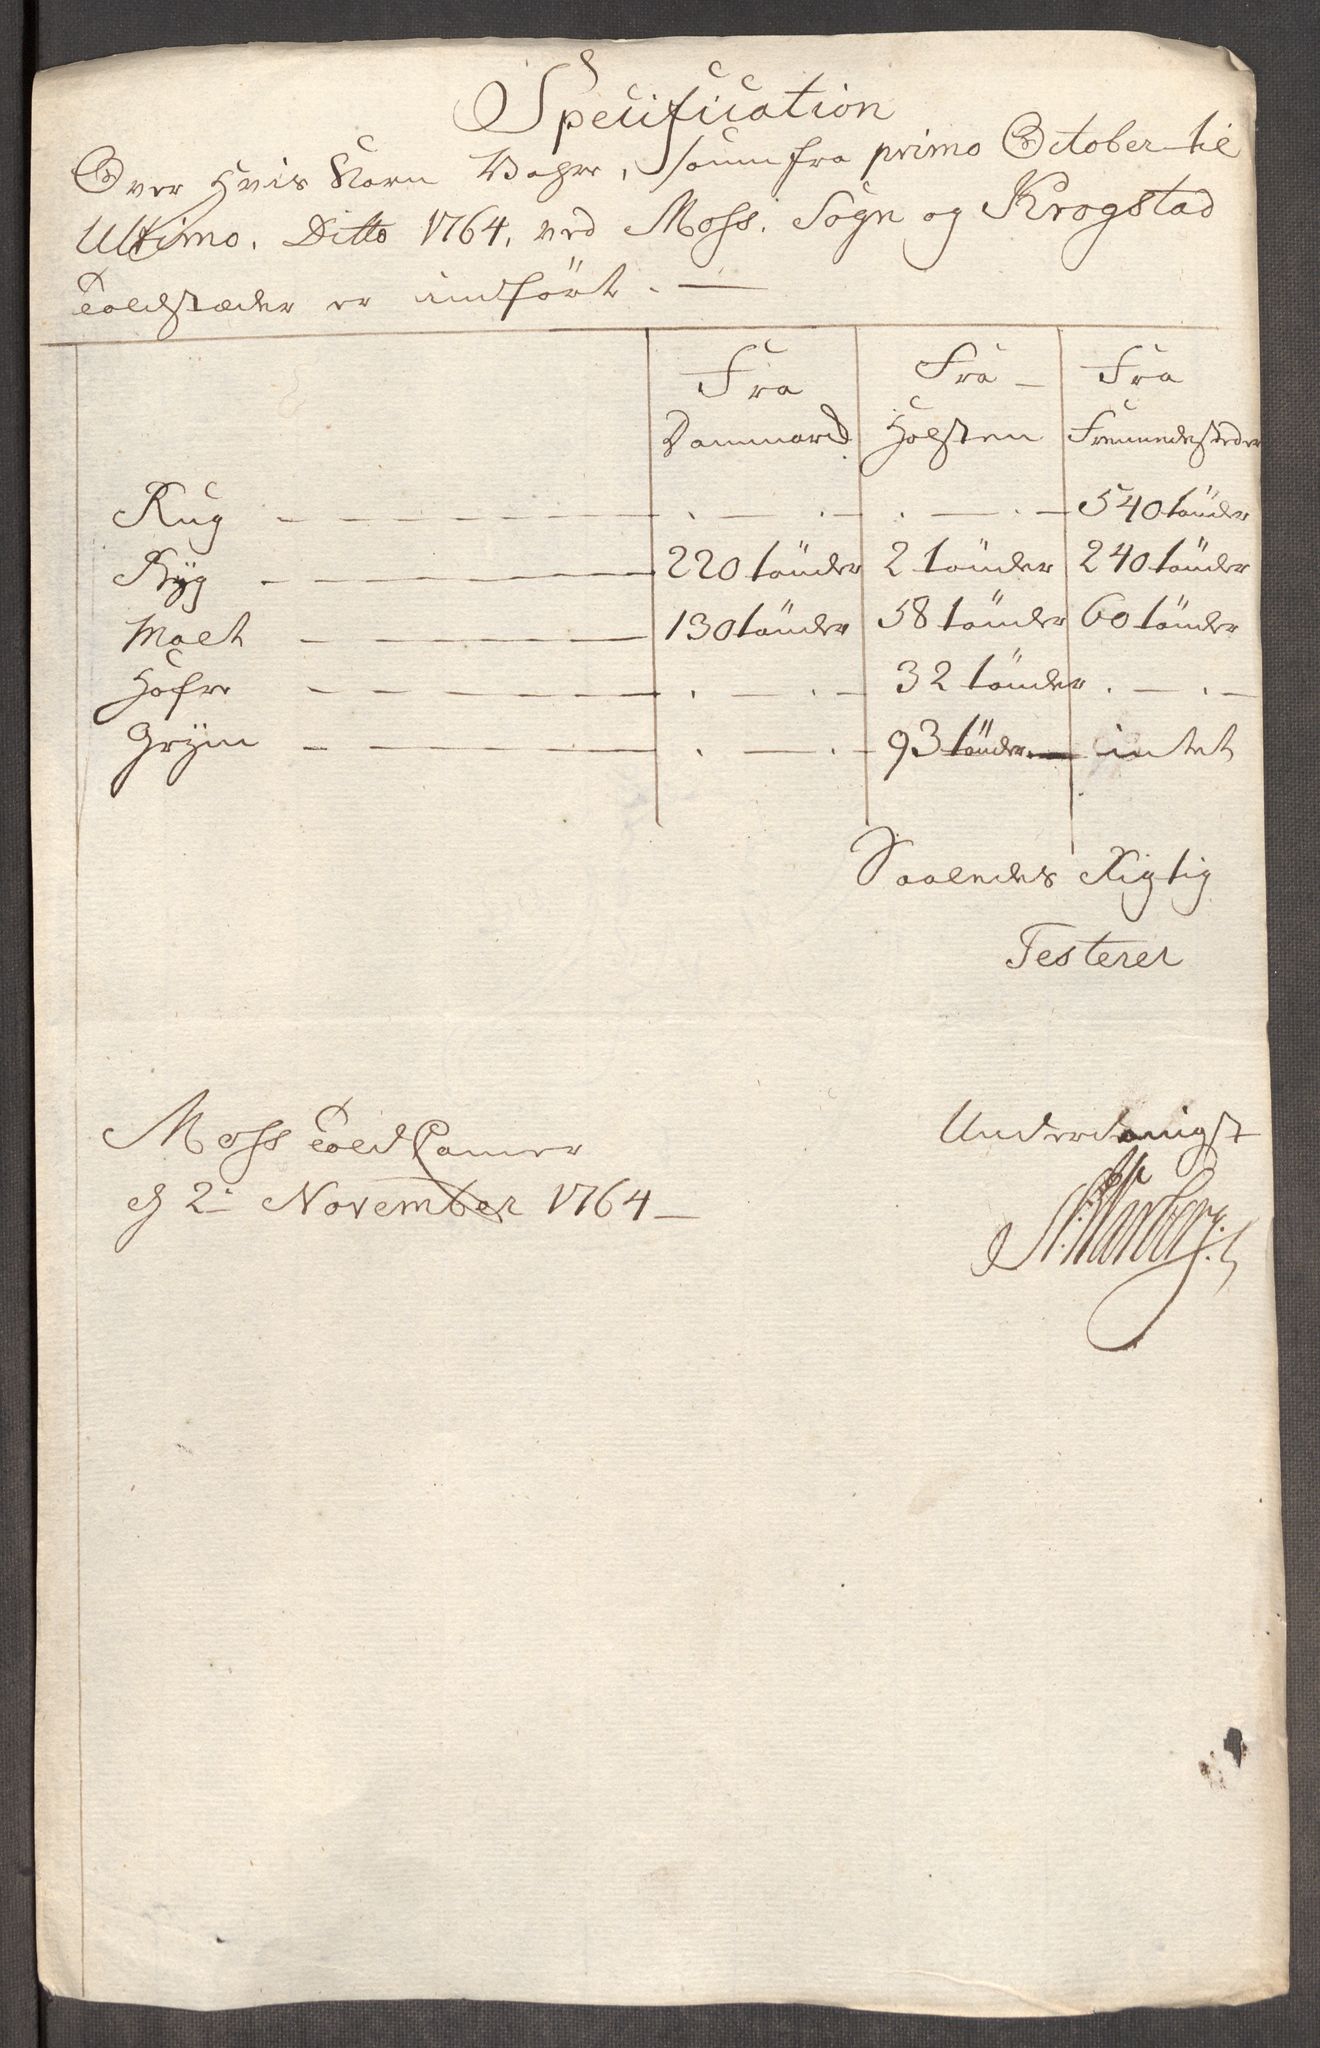 Specification
Over Hvis Korn Vahre, som fra primo October til
Ultimo. Ditto 1764, ved Moss. Sogn og Krogstad
Toldstæder er indført. —
Fra Danmarck
Fra Holsten
Fra Fremmedesteder
Rug — . — . . — . 540 tönder
Byg — 220 tönder 2 tönder 240 tönder
Malt — 130 tönder 58 tönder 60 tönder
Hafre — . — . 32 tönder . — .
Gryin — . — . 93 tönder — intet
Saaledes Rigtig
Testerer
Moss Told Camer
d 2. November 1764 —
Underdanigst